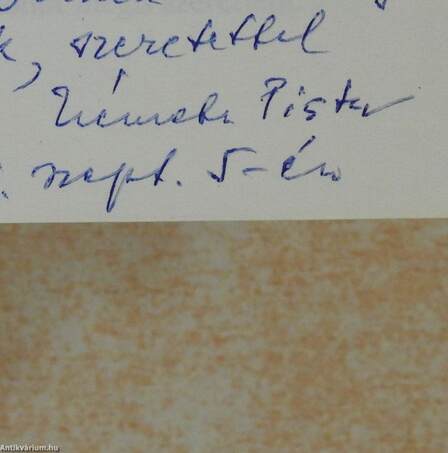 k, szeretettel
Németh Pista
szept. 5-én
Antikvárium.hu